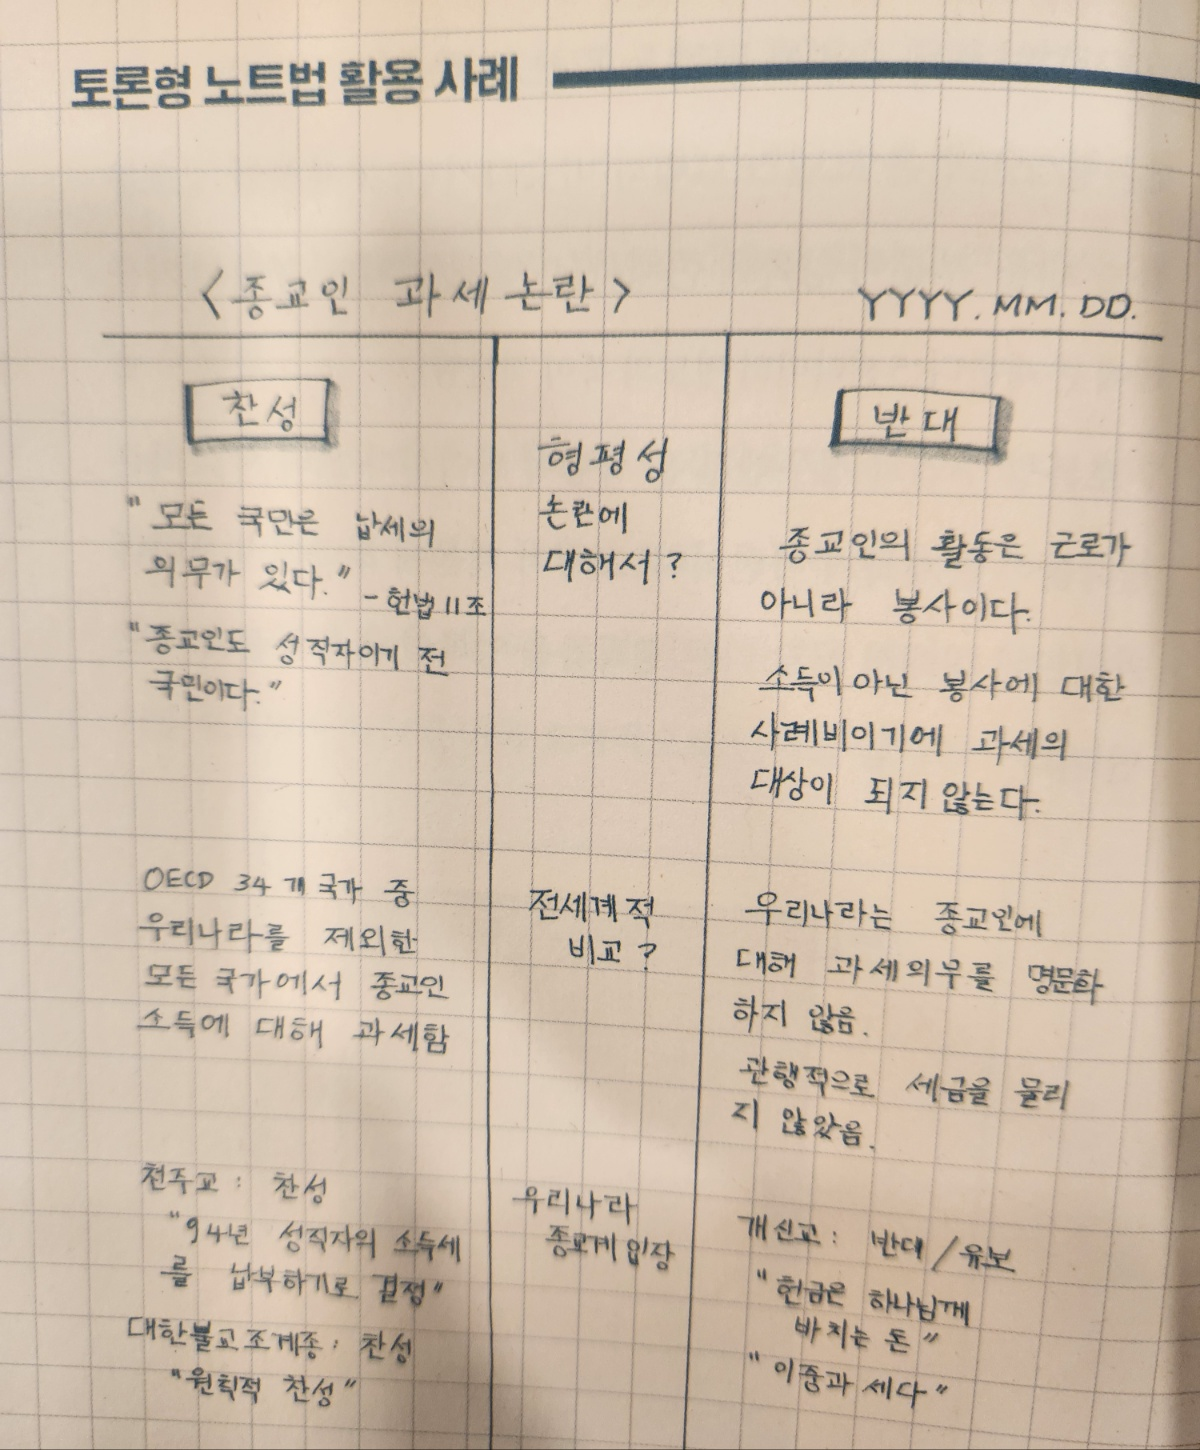 토론형 노트법 활용 사례
<종교인 과세 논란>
YYYY.MM.DD.
찬성
"모든 국민은 납세의
의무가 있다."
- 헌법 11조
"종교인도 성직자이기 전
국민이다."
형평성
논란에
대해서?
반대
종교인의 활동은 근로가
아니라 봉사이다.
소득이 아닌 봉사에 대한
사례비이기에 과세의
대상이 되지 않는다.
OECD 34개 국가 중
우리나라를 제외한
모든 국가에서 종교인
소득에 대해 과세함
전세계적
비교?
우리나라는 종교인에
대해 과세의무를 명문화
하지 않음.
관행적으로 세금을 물리
지 않았음.
천주교: 찬성
"94년 성직자의 소득세
를 납부하기로 결정"
대한불교조계종: 찬성
"원칙적 찬성"
우리나라
종교계 입장
개신교: 반대/유보
"헌금은 하나님께
바치는 돈"
"이중과세다"